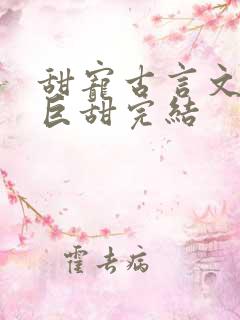 甜寵古言文
巨甜完結
霍去病